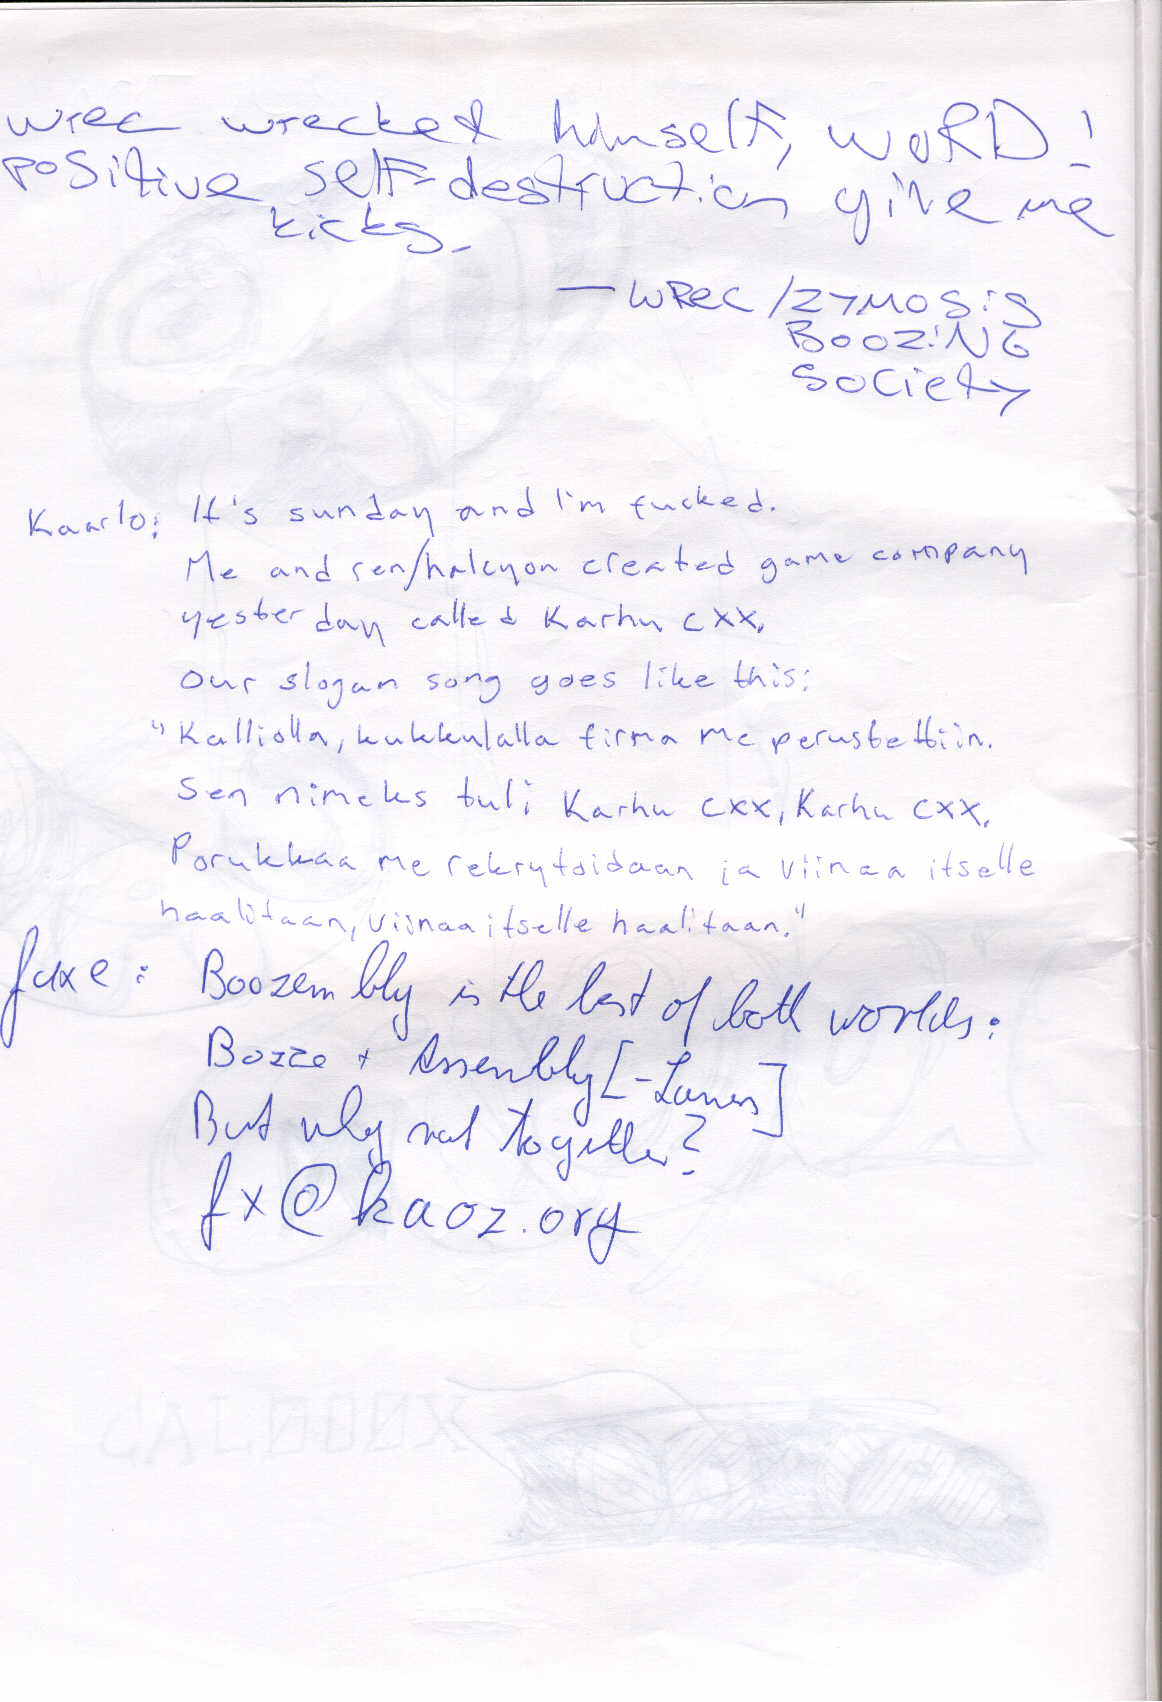 wrec wrecked himself, WORD!
positive self-destruction give me
kicks.
— WREC / ZYMOSIS
BOOZING
SOCIETY
Kaarlo: It's sunday and I'm fucked.
Me and ren/halcyon created game company
yesterday called Karhu cxx.
Our slogan song goes like this:
"Kalliolla, kukkulalla firma me perustettiin.
Sen nimeks tuli Karhu cxx, Karhu cxx.
Porukkaa me rekrytoidaan ja viinaa itselle
haalitaan, viinaa itselle haalitaan."
fuxe: Boozembly is the best of both worlds:
Booze + Assembly [-Lamers]
But why not together?
fx@kaoz.org